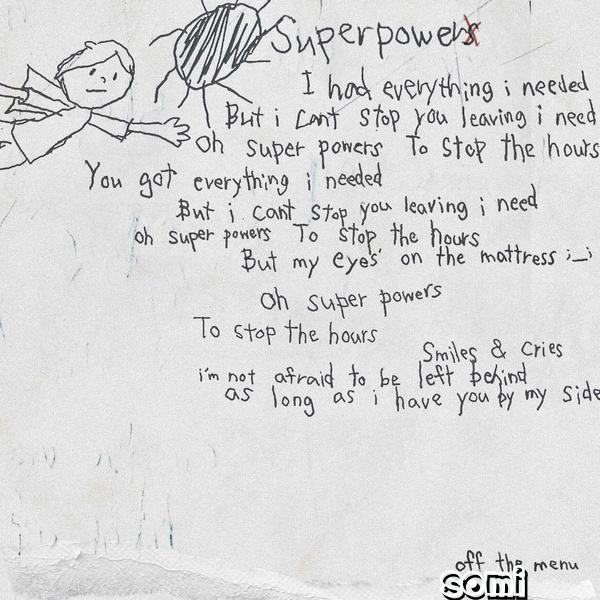 Superpowers
I had everything i needed
But i cant stop you leaving i need
oh super powers To stop the hours
You got everything i needed
But i cant stop you leaving i need
oh super powers To stop the hours
But my eyes on the mattress ;_;
oh super powers
To stop the hours
Smiles & cries
i'm not afraid to be left behind
as long as i have you by my side
off the menu
somi